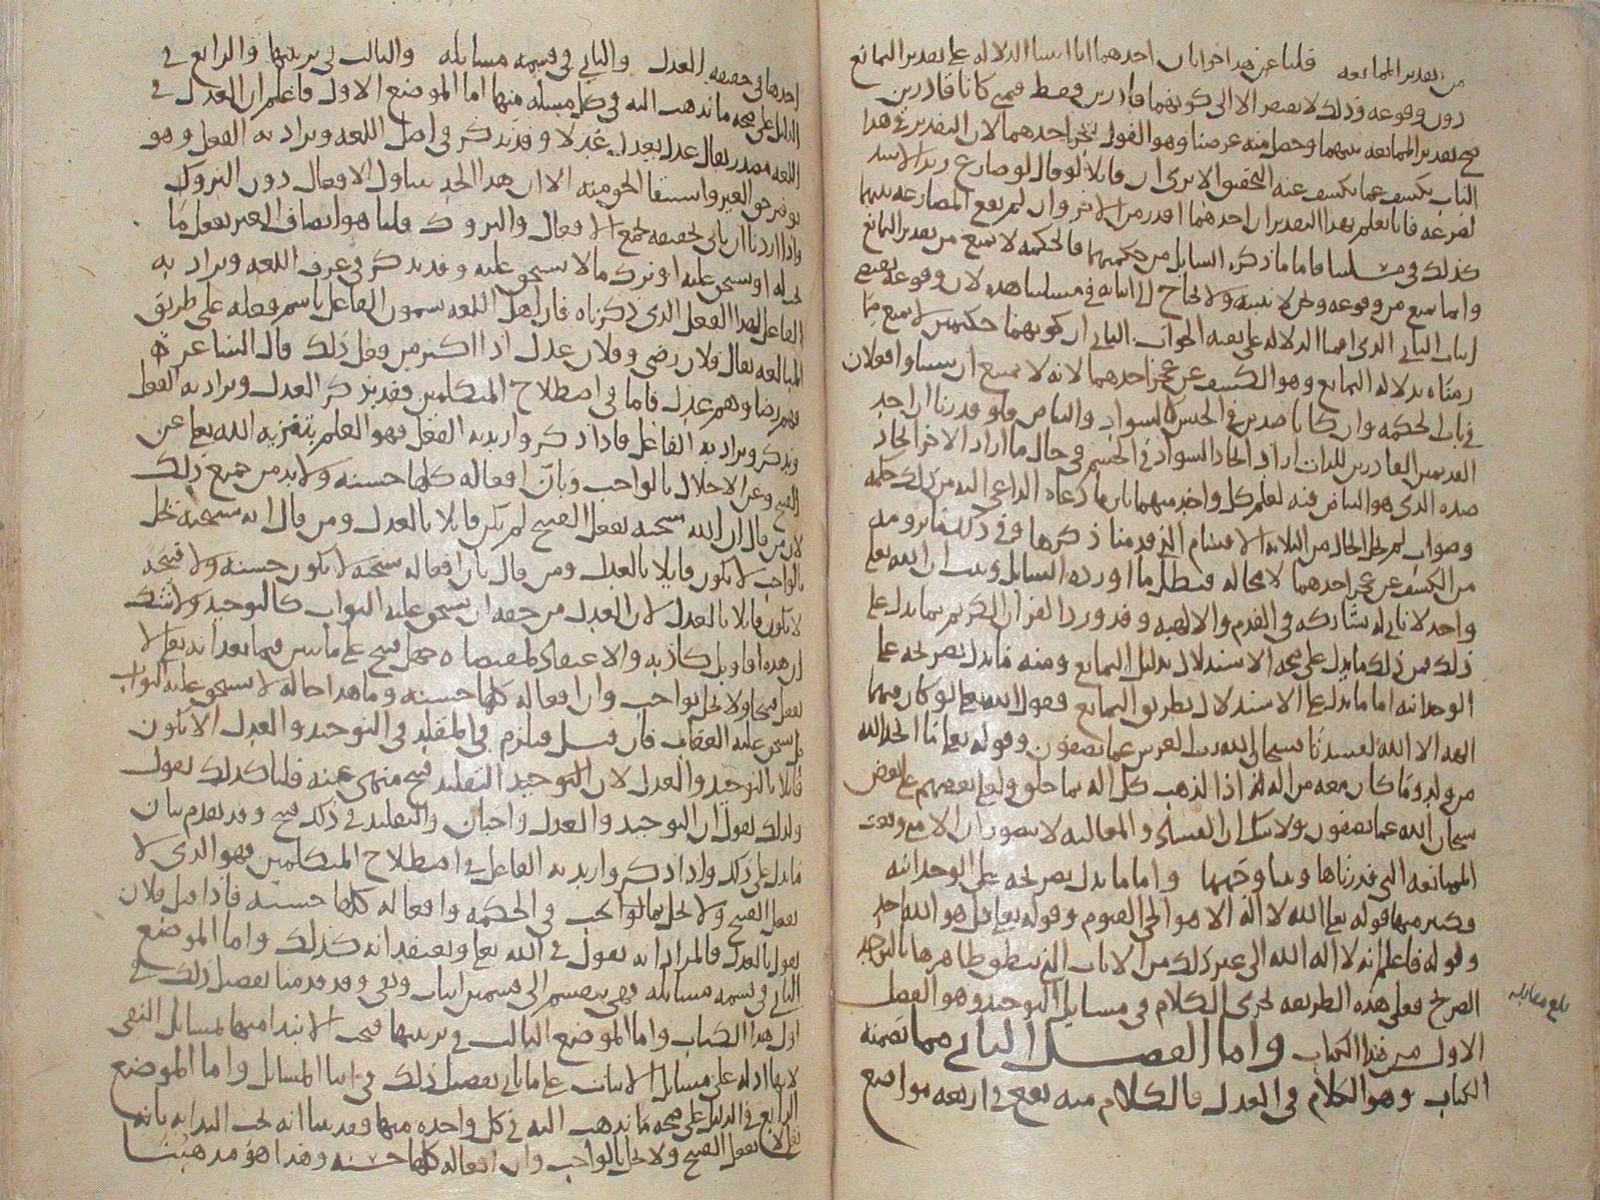 من تقدير الممانعه قلنا عن هذا جوابان احدهما انا اسسنا الدلاله على تقدير التمانع
دون وقوعه وذلك لا يفتقر الا الى كونهما قادرين فقط فمتى كانا قادرين
صح تقدير الممانعه بينهما وحصل منه غرضنا وهو القول بعجز احدهما لان التقدير في هذا
الباب يكشف عما يكشف عنه التحقيق الا ترى ان قائلا لو قال لو صارع زيد الاسد
لصرعه فانا نعلم بهذا التقدير ان احدهما اقدر من الاخر وان لم تقع المصارعه بينهما
كذلك في مسئلتنا فاما ما ذكره السايل من حكمتهما فالحكمه لا تمنع من تقدير التمانع
وانما تمنع من وقوعه ولا نحتاج الى اثباته في مسئلتنا هذه لان وقوعه يقتضي
اثبات الثاني الذي اقمنا الدلاله على نفيه الجواب الثاني ان كونهما حكيمين لا يمنع مما
رمناه بدلاله التمانع وهو الكشف عن عجز احدهما لانه لا يمتنع ان يستوا فعلان
في باب الحكمه وان كانا ضدين في الجنس كالسواد والبياض فلو قدرنا ان احد
القديمين القادرين للذات اراد ايجاد السواد في الجسم في حال ما اراد الاخر ايجاد
ضده الذي هو البياض فيه لعلم كل واحد منهما بان ما دعاه الداعي اليه من ذلك حكمه
وصواب لم يخل الحال من الثلاثه الاقسام التي قدمنا ذكرها وفي ذلك ما نرومه
من الكشف عن عجز احدهما لا محاله فبطل ما اورده السايل وثبت ان الله تعلى
واحد لا ثاني له يشاركه في القدم والالهيه وقد ورد القران الكريم بما يدل على
ذلك فمن ذلك ما يدل على صحه الاستدلال بدليل التمانع ومنه ما يدل بصريحه على
الوحدانيه اما ما يدل على الاستدلال بطريق التمانع فقول الله تعلى لو كان فيهما
الهه الا الله لفسدتا فسبحان الله رب العرش عما يصفون وقوله تعلى ما اتخذ الله
من ولد وما كان معه من اله اذا لذهب كل اله بما خلق ولعلى بعضهم على بعض
سبحان الله عما يصفون ولا شك ان الفساد والمغالبه لا يتصوران الا مع وقوع
الممانعه التي قدرناها وبينا وجهها واما ما يدل بصريحه على الوحدانيه
فكثير منها قوله تعلى الله لا اله الا هو الحي القيوم وقوله تعلى قل هو الله احد
وقوله فاعلم انه لا اله الا الله الى غير ذلك من الايات التي ينطق ظاهرها بالتوحيد
الصريح فعلى هذه الطريقه يجري الكلام في مسايل التوحيد وهو الفصل
الاول من هذا الكتاب واما الفصل الثاني مما تضمنه
الكتاب وهو الكلام في العدل فالكلام منه يقع في اربعه مواضع
بلغ مقابله
احدها في حقيقه العدل والثاني في قسمه مسايله والثالث في ترتيبها والرابع في
الدليل على صحه ما نذهب اليه في كل مسئله منها اما الموضع الاول فاعلم ان العدل في
اللغه مصدر يقال عدل يعدل عدلا وقد يذكر في اصل اللغه ويراد به الفعل وهو
توفير حق الغير واستيفا الحق منه الا ان هذا الحد يتناول الافعال دون التروك
واذا اردنا ان ناتي بحقيقه تجمع الافعال والتروك قلنا هو انصاف الغير بفعل ما
يجب له او يستحق عليه او ترك ما لا يستحق عليه وقد يذكر في عرف اللغه ويراد به
الفاعل لهذا الفعل الذي ذكرناه فان اهل اللغه يسمون الفاعل باسم فعله على طريق
المبالغه يقال فلان رضى وفلان عدل اذا اكثر من فعل ذلك قال الشاعر
فهم رضا وهم عدل فاما في اصطلاح المتكلمين فقد يذكر العدل ويراد به الفعل
ويذكر ويراد به الفاعل فاذا ذكر واريد به الفعل فهو العلم بتنزيه الله تعلى عن
القبيح وعن الاخلال بالواجب وبان افعاله كلها حسنه ولا بد من جميع ذلك
لان من قال ان الله سبحنه يفعل القبيح لم يكن قائلا بالعدل ومن قال انه سبحنه يخل
بالواجب لا يكون قايلا بالعدل ومن قال بان افعاله سبحنه لا تكون حسنه ولا قبيحه
لا يكون قايلا بالعدل لان العدل من حقه ان يستحق عليه الثواب كالتوحيد ولا شك
ان هذه اقاويل كاذبه والاعتقاد لمقتضاه جهل قبيح على ما نبين فيما بعد انه تعلى لا
يفعل قبيحا ولا يخل بواجب وان افعاله كلها حسنه وما هذا حاله لا يستحق عليه الثواب
بل يستحق عليه العقاب فان قيل فيلزم في المقلد في التوحيد والعدل الا يكون
قائلا بالتوحيد والعدل لان التوحيد التقليد قبيح منهي عنه قلنا كذلك نقول
ولذلك نقول ان التوحيد والعدل واجبان والتقليد في ذلك قبيح وقد تقدم بيان
ما يدل على ذلك واذا ذكر واريد به الفاعل في اصطلاح المتكلمين فهو الذي لا
يفعل القبيح ولا يخل بما يجب في الحكمه وافعاله كلها حسنه فاذا قيل فلان
يقول بالعدل فالمراد انه يقول في الله تعلى ويعتقد انه كذلك واما الموضع
الثاني في قسمه مسايله فهي تنقسم الى قسمين اثبات ونفي وقد قدمنا تفصيل ذلك في
اول هذا الكتاب واما الموضع الثالث في ترتيبها فيجب الابتدا منها بمسايل النفي
لانها ادله على مسايل الاثبات على ما ياتي تفصيل ذلك في اثنا المسايل واما الموضع
الرابع في الدليل على صحه ما نذهب اليه في كل واحده منها وقد بينا انه يجب البدايه بانه
تعلى لا يفعل القبيح ولا يخل بالواجب وان افعاله كلها حسنه وهذا هو مذهبنا